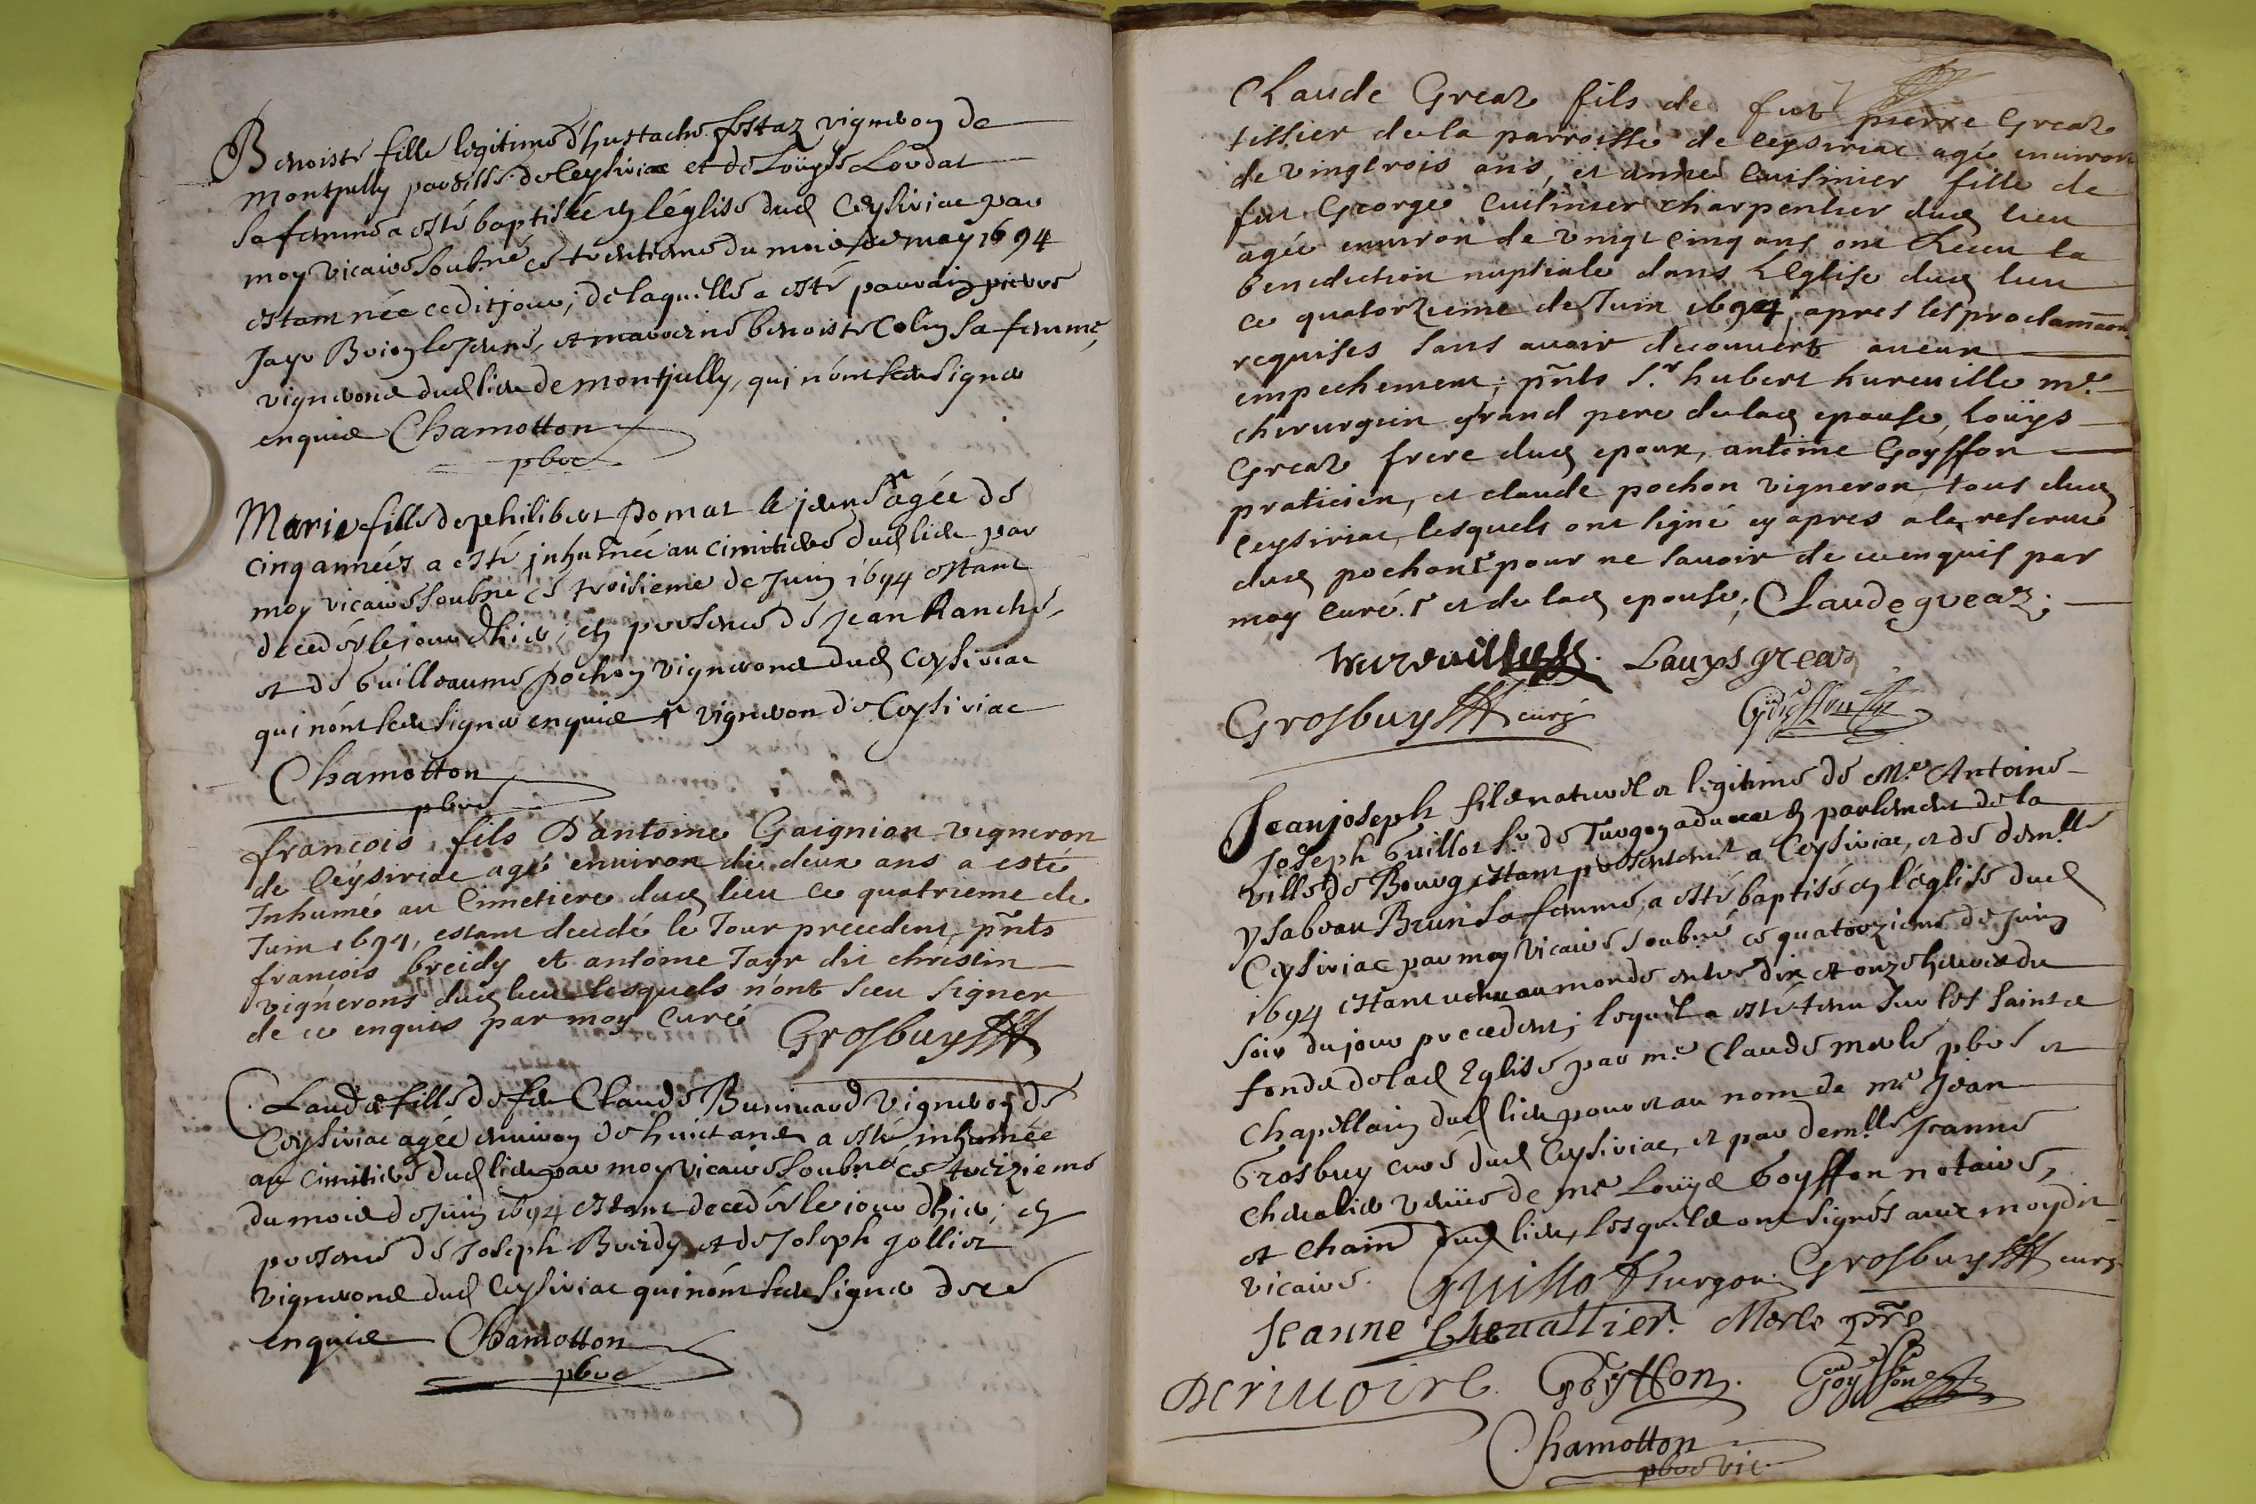 Benoiste fille legitime d'hustache festaz vigneron de
montjully parroisse de Ceysiriac et de Loüyse Loudat
sa femme a esté baptisée en l'église dud Ceysiriac par
moy vicaire soubné ce trentieme du mois de may 1694
estant née ced jour, de laquelle a esté parrain pierre
Jayr Brion le jeune, et marreine benoiste Colin sa femme,
vignerons dud lieu de montjully, qui n'ont sceu signer
enquis Chamotton
pbre
Marie fille de philibert Pomat le jeune agée de
cinq années a esté inhumée au cimitiere dud lieu par
moy vicaire soubné ce troisieme de Juin 1694 estant
decedée le jour d'hier, en presence de Jean Ranche,
et de Guilleaume pochon vignerons dud Ceysiriac
qui n'ont sceu signer enquis vigneron de Ceysiriac
Chamotton
pbre
françois fils D'antoine Gaignian vigneron
de Ceysiriac agé environ de deux ans a esté
Inhumé au Cimetiere dud lieu ce quatrieme de
Juin 1694, estant decedé le Jour precedent, pñts
françois breidy et antoine Jayr dit christin
vignerons dud lieu lesquels n'ont sceu signer
de ce enquis par moy Curé Grosbuy
Claude fille de feu Claude Bunivard vigneron de
Ceysiriac agée environ de huict ans a esté inhumée
au cimitiere dud lieu par moy vicaire soubné ce treizieme
du mois de Juin 1694 estant decedée le jour d'hier, en
presence de Joseph Breidy et de Joseph Jolliet
vignerons dud Ceysiriac qui n'ont sceu signer de ce
enquis Chamotton
pbre
Claude Greaz fils de feu pierre Greaz
tissier de la parroisse de Ceysiriac agé environ
de vingtrois ans, et anne Cuisinier fille de
feu George Cuisinier charpentier dud lieu
agée environ de vingt cinq ans ont Receu la
benediction nuptiale dans L'Eglise dud lieu
ce quatorzieme de Juin 1694, apres les proclamãons
requises sans avoir decouvert aucun
empechement; pñts Sr. hubert hureuille me.
chirurgien grand pere de lad epouse, loüys
Greaz frere dud epoux, antoine Goyffon
praticien, et claude pochon vigneron, tous dud
Ceysiriac, lesquels ont signé cy apres a la reserve
dud pochon pour ne savoir de ce enquis par
moy Curé. et de lad epouse; Claude greaz.
hureuille Louys greaz
Grosbuy curé Goiffon
Jean joseph fils naturel et legitime de Me. Antoine
Joseph Guillot Sr. de Turgon advocat en parlement de la
ville de Bourg estant presentement a Ceysiriac, et de demlle
ysabeau Brun sa femme, a esté baptisé en l'église dud
Ceysiriac par moy vicaire soubné ce quatorzieme de Juin
1694 estant venu au monde entre dix et onze heures du
soir du jour precedent; lequel a esté tenu sur les saints
fonds de lad Eglise par me Claude merle pbre et
chapellain dud lieu pour et au nom de me Jean
Grosbuy curé dud Ceysiriac, et par demlle Jeanne
chevalier veuve de me Loüys Goyffon notaire,
et Chain dud lieu, lesquels ont signés avec moydit
vicaire. Guillo Turgon Grosbuy curé
Jeanne Chevallier. Merle pr̃e
Derivoire. Goyffon. Goyffon
Chamotton
pbre vic.